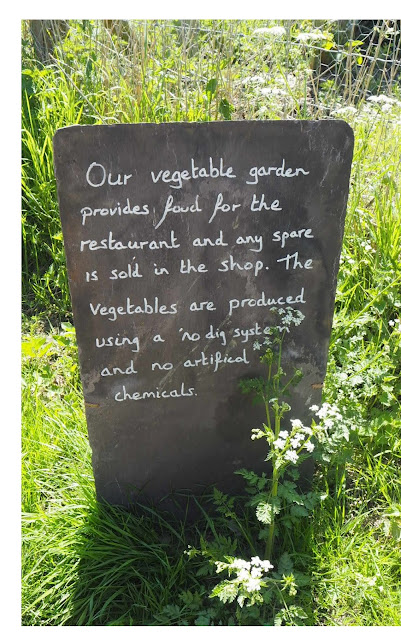 Our vegetable garden
provides food for the
restaurant and any spare
is sold in the shop. The
vegetables are produced
using a 'no dig
and no artifical
chemicals.